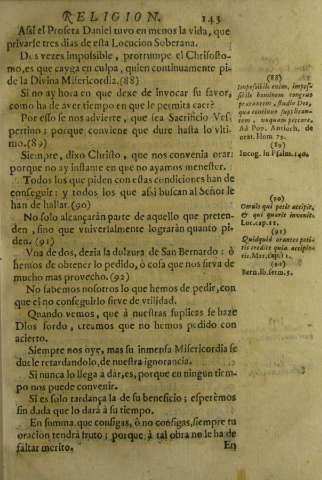 RELIGION. 143
Assi el Profeta Daniel tuvo en menos la vida, que
privarse tres dias de esta Locucion Soberana.
Dos vezes impossible, prorrumpe el Chrisosto-
mo, es que cayga en culpa, quien continuamente pi-
de la Divina Misericordia. (88)
Si no ay hora en que dexe de invocar su favor,
como ha de aver tiempo en que le permita caer?
Por esso se nos advierte, que sea Sacrificio Ves-
pertino; porque conviene que dure hasta lo vlti-
mo. (89)
Siempre, dixo Christo, que nos convenia orar:
porque no ay instante en que no ayamos menester.
Todos los que piden con estas condiciones han de
conseguir: y todos los que assi buscan al Señor le
han de hallar. (90)
No solo alcançarán parte de aquello que preten-
den, sino que vniversalmente lograrán quanto pi-
den. (91)
Vna de dos, dezia la dulzura de San Bernardo: ò
hemos de obtener lo pedido, ò cosa que nos sirva de
mucho mas provecho. (92)
No sabemos nosotros lo que hemos de pedir, con
que el no conseguirlo sirve de vtilidad.
Quando vemos, que à nuestras suplicas se haze
Dios sordo, creamos que no hemos pedido con
acierto.
Siempre nos oye, mas su inmensa Misericordia se
duele retardandolo, de nuestra ignorancia.
Si nunca lo llega à dar, es, porque en ningun tiem-
po nos puede convenir.
Si es solo tardança la de su beneficio; esperèmos
sin dada que lo dará à su tiempo.
En summa, que consigas, ò no consigas, siempre tu
oracion tendrá fruto; porque à tal obra no le ha de
faltar merito. En
(88)
Impossibile enim, impos-
sibile hominem congruo
precantem, studio Deo,
qua continuo supplican-
tem, unquam peccare.
Ad Pop. Antioch. de
orat. Hom. 79.
(89)
Incog. in Psalm. 140.
(90)
Omnis qui petit accipit,
& qui quærit invenit.
Luc. cap. 11.
(91)
Quidquid orantes peti-
tis credite quia accipie-
tis. Mar. cap. 11.
(92)
Bern. in ser. 5.